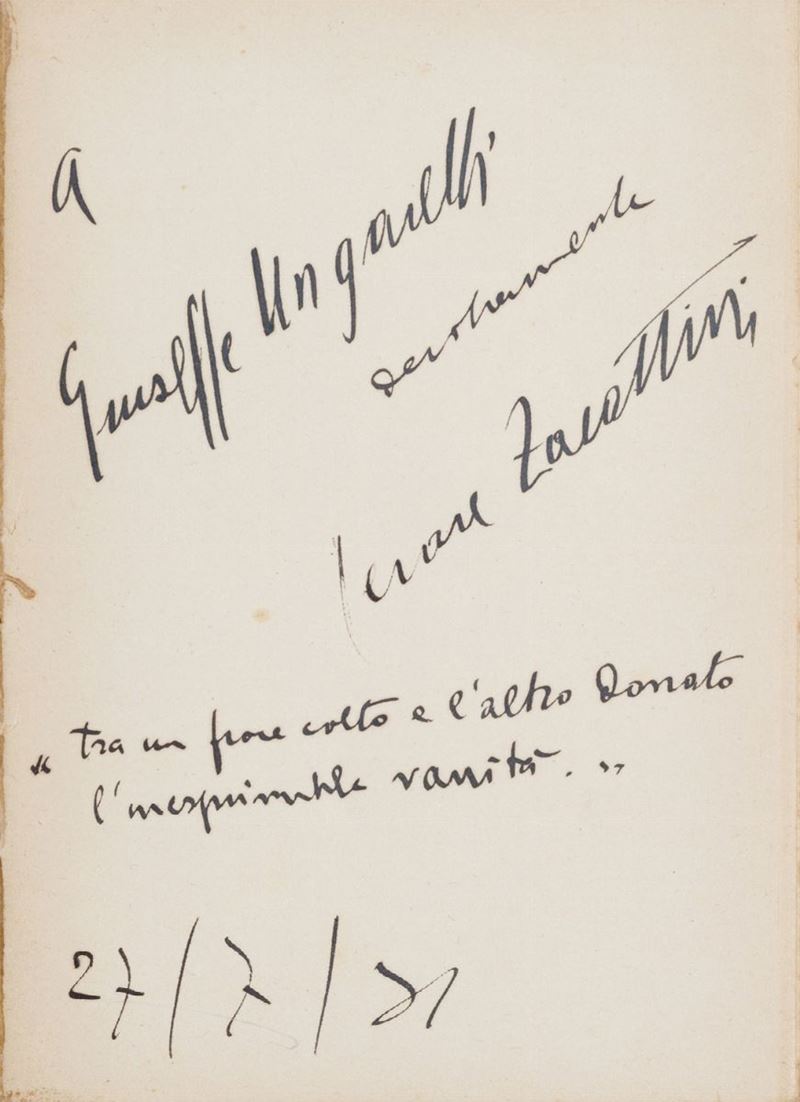 A
Giuseppe Ungaretti
devotamente
Cesare Zavattini
" tra un fiore colto e l'altro donato
l'inesprimibile vanità. "
27/7/31